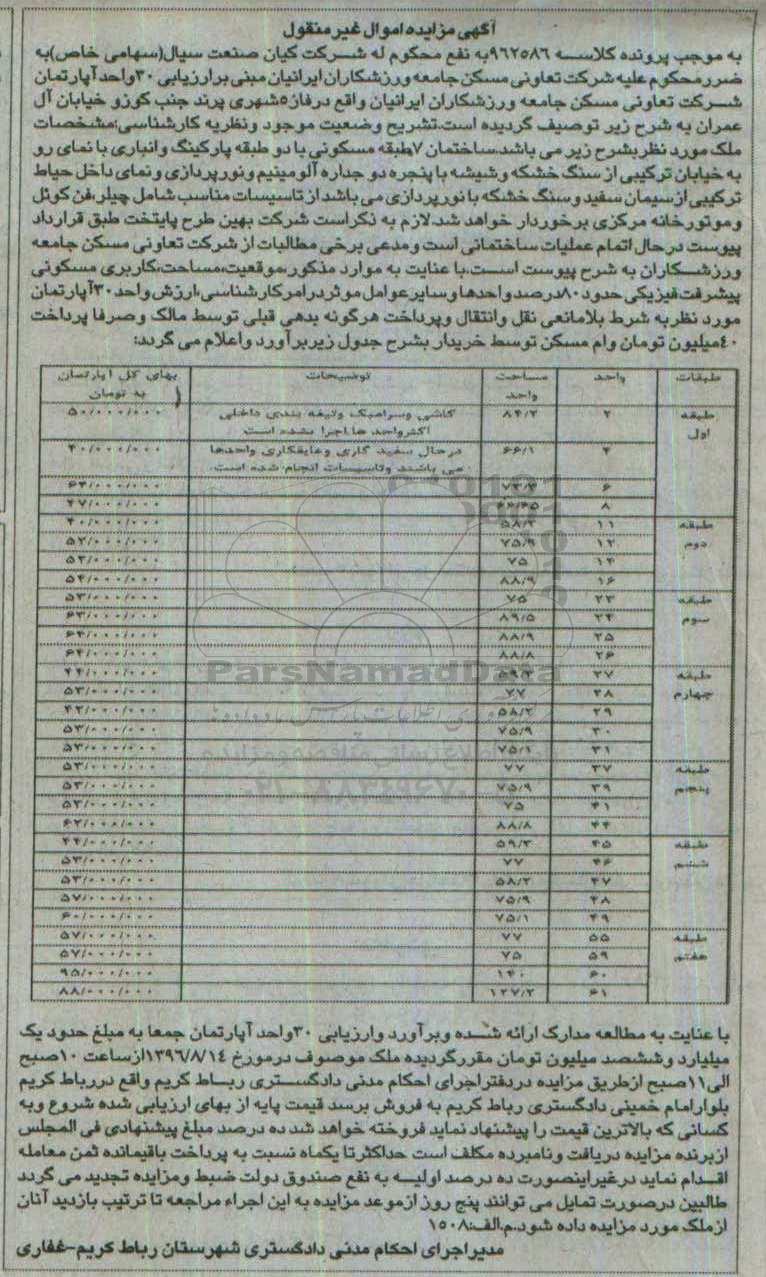 آگهی مزایده اموال غیرمنقول
به موجب پرونده کلاسه ۹۶۲۵۸۶به نفع محکوم له شرکت کیان صنعت سیال(سهامی خاص)به
ضررمحکوم علیه شرکت تعاونی مسکن جامعه ورزشکاران ایرانیان مبنی برارزیابی ۳۰واحدآپارتمان
شرکت تعاونی مسکن جامعه ورزشکاران ایرانیان واقع درفاز۵شهری پرند جنب کوزو خیابان آل
عمران به شرح زیر توصیف گردیده است.تشریح وضعیت موجود ونظریه کارشناسی:مشخصات
ملک مورد نظربشرح زیر می باشد.ساختمان ۷طبقه مسکونی با دو طبقه پارکینگ وانباری با نمای رو
به خیابان ترکیبی از سنگ خشکه وشیشه با پنجره دو جداره آلومینیم ونورپردازی ونمای داخل حیاط
ترکیبی ازسیمان سفیدوسنگ خشکه با نورپردازی می باشد از تاسیسات مناسب شامل چیلر،فن کوئل
وموتورخانه مرکزی برخوردار خواهد شد.لازم به ذکراست شرکت بهین طرح پایتخت طبق قرارداد
پیوست درحال اتمام عملیات ساختمانی است ومدعی برخی مطالبات از شرکت تعاونی مسکن جامعه
ورزشکاران به شرح پیوست است.با عنایت به موارد مذکور،موقعیت،مساحت،کاربری مسکونی
پیشرفت فیزیکی حدود ۸۰درصدواحدها وسایرعوامل موثردرامرکارشناسی،ارزش واحد۳۰آپارتمان
مورد نظربه شرط بلامانعی نقل وانتقال وپرداخت هرگونه بدهی قبلی توسط مالک وصرفا پرداخت
۴۰میلیون تومان وام مسکن توسط خریدار بشرح جدول زیربرآورد واعلام می گردد:
طبقات واحد مساحت واحد توضیحات بهای کل آپارتمان به تومان
طبقه اول ۲ ۸۴/۲ کاشی وسرامیک وتیغه بندی داخلی اکثرواحد ها اجرا نشده است ۵۰/۰۰۰/۰۰۰
۴ ۶۶/۱ درحال سفید کاری وعایقکاری واحدها می باشند وتاسیسات انجام شده است ۴۰/۰۰۰/۰۰۰
۶ ۷۳/۳ ۶۳/۰۰۰/۰۰۰
۸ ۶۶/۶۵ ۴۷/۰۰۰/۰۰۰
طبقه دوم ۱۱ ۵۸/۲ ۴۰/۰۰۰/۰۰۰
۱۲ ۷۵/۹ ۵۲/۰۰۰/۰۰۰
۱۴ ۷۵ ۵۲/۰۰۰/۰۰۰
۱۶ ۸۸/۹ ۵۴/۰۰۰/۰۰۰
طبقه سوم ۲۳ ۷۵ ۵۳/۰۰۰/۰۰۰
۲۴ ۸۹/۵ ۶۳/۰۰۰/۰۰۰
۲۵ ۸۸/۹ ۶۴/۰۰۰/۰۰۰
۲۶ ۸۸/۸ ۶۴/۰۰۰/۰۰۰
طبقه چهارم ۲۷ ۵۹/۳ ۴۴/۰۰۰/۰۰۰
۲۸ ۷۷ ۵۳/۰۰۰/۰۰۰
۲۹ ۵۸/۲ ۴۲/۰۰۰/۰۰۰
۳۰ ۷۵/۹ ۵۳/۰۰۰/۰۰۰
۳۱ ۷۵/۱ ۵۳/۰۰۰/۰۰۰
طبقه پنجم ۳۷ ۷۷ ۵۳/۰۰۰/۰۰۰
۳۹ ۷۵/۹ ۵۳/۰۰۰/۰۰۰
۴۱ ۷۵ ۵۳/۰۰۰/۰۰۰
۴۴ ۸۸/۸ ۶۲/۰۰۰/۰۰۰
طبقه ششم ۴۵ ۵۹/۳ ۴۴/۰۰۰/۰۰۰
۴۶ ۷۷ ۵۳/۰۰۰/۰۰۰
۴۷ ۵۸/۲ ۵۳/۰۰۰/۰۰۰
۴۸ ۷۵/۹ ۵۷/۰۰۰/۰۰۰
۴۹ ۷۵/۱ ۶۰/۰۰۰/۰۰۰
طبقه هفتم ۵۵ ۷۷ ۵۷/۰۰۰/۰۰۰
۵۹ ۷۵ ۵۷/۰۰۰/۰۰۰
۶۰ ۱۴۰ ۹۵/۰۰۰/۰۰۰
۶۱ ۱۲۷/۲ ۸۸/۰۰۰/۰۰۰
ParsNamadData
با عنایت به مطالعه مدارک ارائه شده وبرآورد وارزیابی ۳۰واحد آپارتمان جمعا به مبلغ حدود یک
میلیارد وششصد میلیون تومان مقررگردیده ملک موصوف درمورخ ۱۳۹۶/۸/۱۴ازساعت ۱۰صبح
الی۱۱صبح ازطریق مزایده دردفتراجرای احکام مدنی دادگستری رباط کریم واقع دررباط کریم
بلوارامام خمینی دادگستری رباط کریم به فروش برسد قیمت پایه از بهای ارزیابی شده شروع وبه
کسانی که بالاترین قیمت را پیشنهاد نماید فروخته خواهد شد ده درصد مبلغ پیشنهادی فی المجلس
ازبرنده مزایده دریافت ونامبرده مکلف است حداکثرتا یکماه نسبت به پرداخت باقیمانده ثمن معامله
اقدام نماید درغیراینصورت ده درصد اولیه به نفع صندوق دولت ضبط ومزایده تجدید می گردد
طالبین درصورت تمایل می توانند پنج روز ازموعد مزایده به این اجراء مراجعه تا ترتیب بازدید آنان
ازملک مورد مزایده داده شود.م.الف:۱۵۰۸
مدیراجرای احکام مدنی دادگستری شهرستان رباط کریم-غفاری